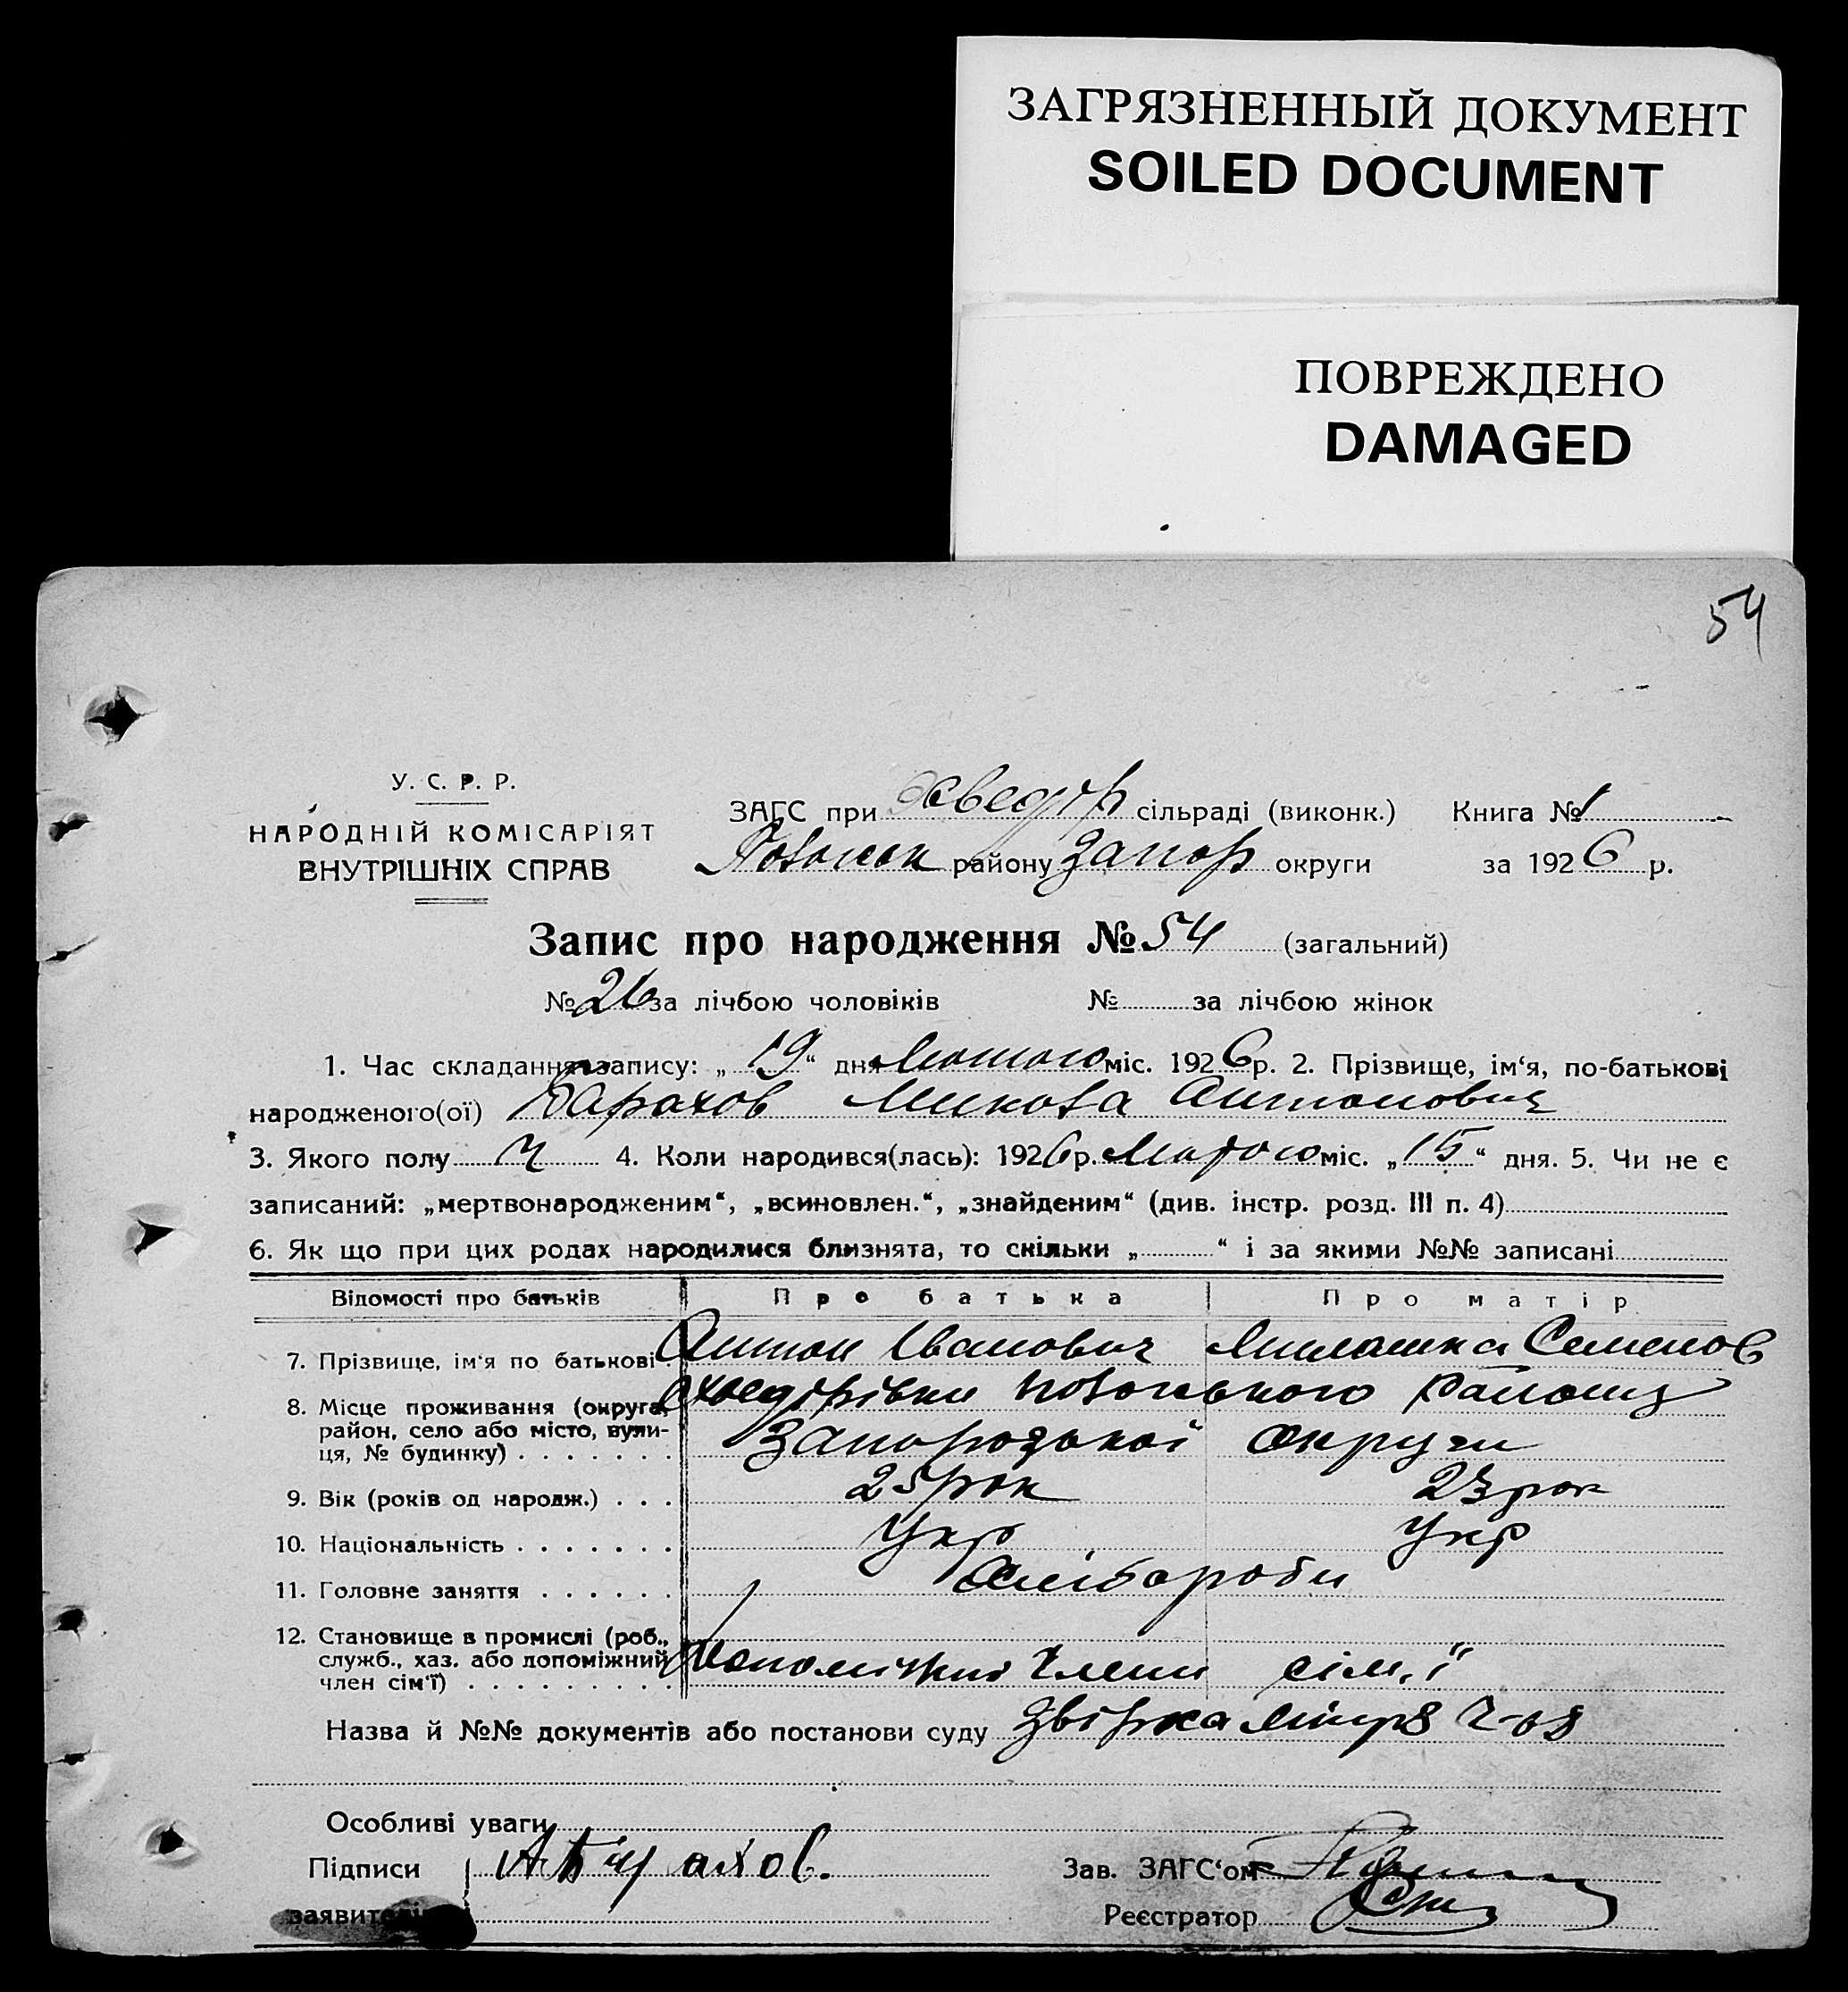 ЗАГРЯЗНЕННЫЙ ДОКУМЕНТ
SOILED DOCUMENT
ПОВРЕЖДЕНО
DAMAGED
54
У. С. Р. Р.
НАРОДНІЙ КОМІСАРІЯТ
ВНУТРІШНІХ СПРАВ
ЗАГС при сільраді (виконк.) Книга № 1
району Запор округи за 1926 р.
Запис про народження № 54 (загальний)
№ 26 за лічбою чоловіків № за лічбою жінок
1. Час складання запису: „ 19 “ дня Лютого міс. 1926 р. 2. Прізвище, ім‘я, по-батькові
народженого(ої) Микола Антонович
3. Якого полу Ч 4. Коли народився(лась): 1926 р. Лютого міс. „ 15 “ дня. 5. Чи не є
записаний: „мертвонародженим“, „всиновлен.“, „знайденим“ (див. інстр. розд. III п. 4)
6. Як що при цих родах народилися близнята, то скільки „ “ і за якими №№ записані
Відомості про батьків Про батька Про матір
7. Прізвище, ім‘я по батькові Антон Іванович Семенов
8. Місце проживання (округа, району
район, село або місто, вули- Запорозької округи
ця, № будинку)
9. Вік (років од народж.) 25 рок 23 рок
10. Національність Укр Укр
11. Головне заняття Хлібороби
12. Становище в промислі (роб.,
служб., хаз. або допоміжний Допоміжні члени сім,ї
член сім‘ї)
Назва й №№ документів або постанови суду Звірка
Особливі уваги
Підписи
заявителів
Зав. ЗАГС‘ом
Реєстратор